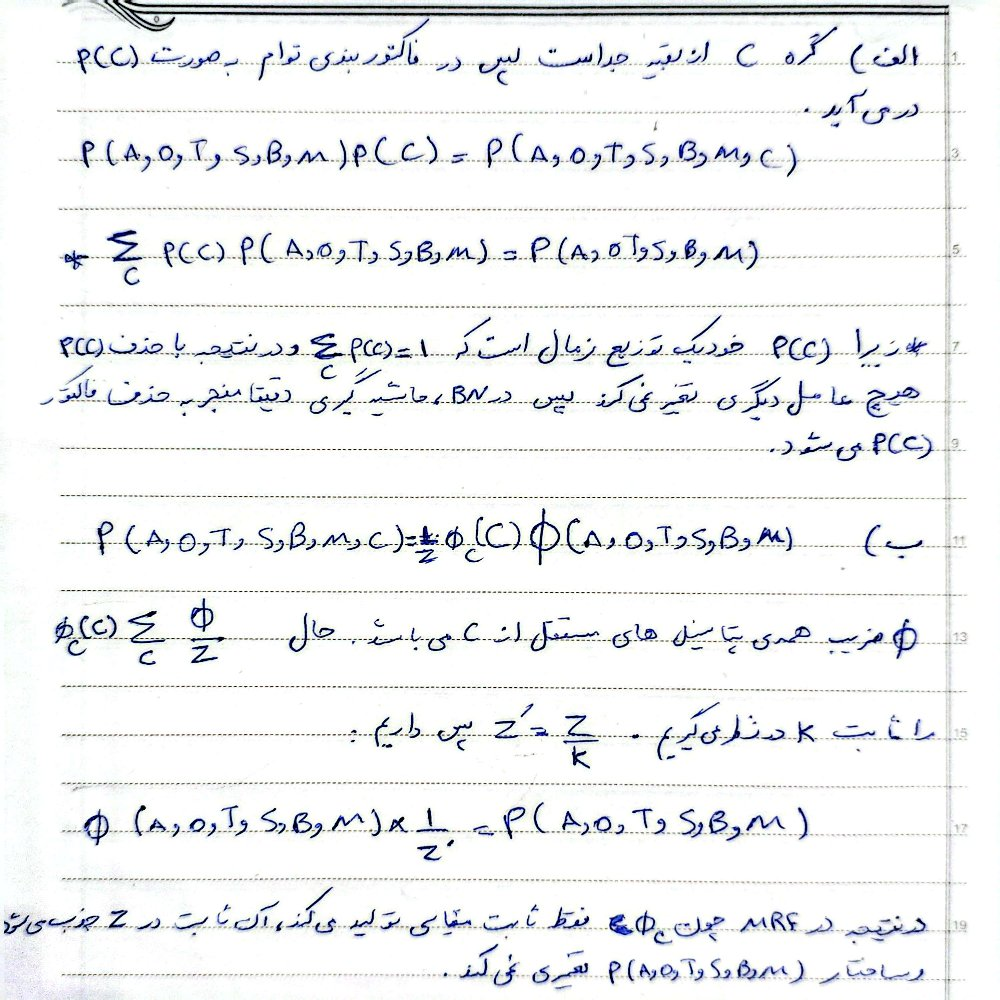 الف) گره C از بقیه جداست پس در فاکتوربندی توام به صورت P(C)
در می آید.
P(A,O,T,S,B,M)P(C) = P(A,O,T,S,B,M,C)
* Σ_C P(C) P(A,O,T,S,B,M) = P(A,O T,S,B,M)
* زیرا P(C) خود یک توزیع نرمال است که Σ_C P(C)=1 و در نتیجه با حذف P(C)
هیچ عامل دیگری تغیر نمی کند پس در BN، حاشیه گیری دقیقا منجر به حذف فاکتور
P(C) می شود.
ب) P(A,O,T,S,B,M,C)=1/Z ϕ_c(C) Φ(A,O,T,S,B,M)
Φ ضریب همه ی پتانسیل های مستقل از C می باشد. حال Φ/Z Σ_C ϕ_c(C)
را ثابت K در نظر می گیریم. Z' = Z/K پس داریم:
Φ (A,O,T,S,B,M) × 1/Z' = P(A,O,T,S,B,M)
در نتیجه در MRF چون ϕ_c فقط ثابت مقیاسی تولید می کند، آن ثابت در Z جذب می شود
و ساختار P(A,O,T,S,B,M) تغییری نمی کند.
1
3
5
7
9
11
13
15
17
19